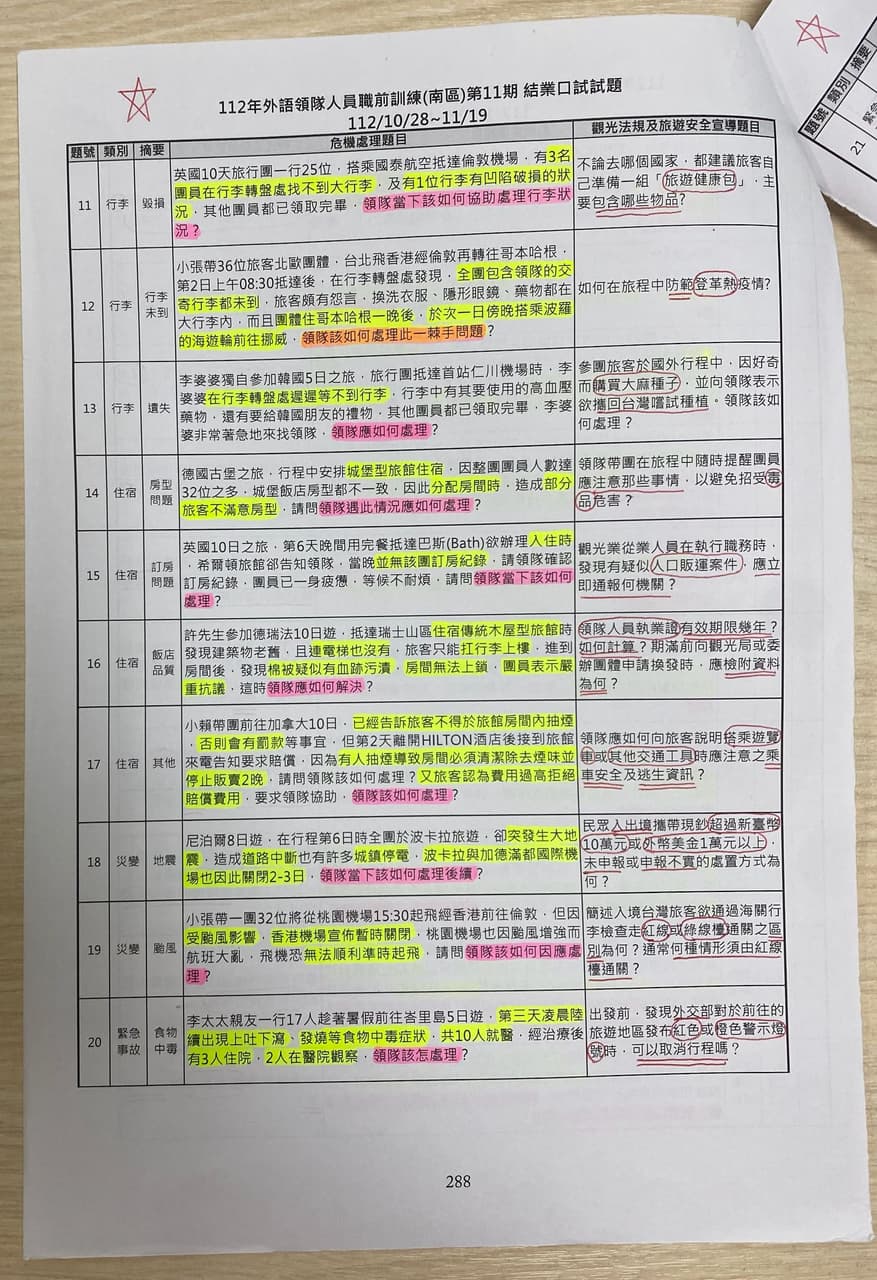 112年外語領隊人員職前訓練(南區)第11期 結業口試試題
112/10/28~11/19
題號 類別 摘要 危機處理題目 觀光法規及旅遊安全宣導題目
11 行李 毀損
英國10天旅行團一行25位，搭乘國泰航空抵達倫敦機場，有3名
團員在行李轉盤處找不到大行李，及有1位行李有凹陷破損的狀
況，其他團員都已領取完畢，領隊當下該如何協助處理行李狀
況？
不論去哪個國家，都建議旅客自
己準備一組「旅遊健康包」，主
要包含哪些物品?
12 行李 行李
未到
小張帶36位旅客北歐團體，台北飛香港經倫敦再轉往哥本哈根，
第2日上午08:30抵達後，在行李轉盤處發現，全團包含領隊的交
寄行李都未到，旅客頗有怨言，換洗衣服、隱形眼鏡、藥物都在
大行李內，而且團體住哥本哈根一晚後，於次一日傍晚搭乘波羅
的海遊輪前往挪威，領隊該如何處理此一棘手問題？
如何在旅程中防範登革熱疫情?
13 行李 遺失
李婆婆獨自參加韓國5日之旅，旅行團抵達首站仁川機場時，李
婆婆在行李轉盤處遲遲等不到行李，行李中有其要使用的高血壓
藥物，還有要給韓國朋友的禮物，其他團員都已領取完畢，李婆
婆非常著急地來找領隊，領隊應如何處理？
參團旅客於國外行程中，因好奇
而購買大麻種子，並向領隊表示
欲攜回台灣嚐試種植。領隊該如
何處理？
14 住宿 房型
問題
德國古堡之旅，行程中安排城堡型旅館住宿，因整團團員人數達
32位之多，城堡飯店房型都不一致，因此分配房間時，造成部分
旅客不滿意房型，請問領隊遇此情況應如何處理？
領隊帶團在旅程中隨時提醒團員
應注意那些事情，以避免招受毒
品危害？
15 住宿 訂房
問題
英國10日之旅，第6天晚間用完餐抵達巴斯(Bath)欲辦理入住時
，希爾頓旅館卻告知領隊，當晚並無該團訂房紀錄，請領隊確認
訂房紀錄，團員已一身疲憊，等候不耐煩，請問領隊當下該如何
處理？
觀光業從業人員在執行職務時，
發現有疑似人口販運案件，應立
即通報何機關？
16 住宿 飯店
品質
許先生參加德瑞法10日遊，抵達瑞士山區住宿傳統木屋型旅館時
發現建築物老舊，且連電梯也沒有，旅客只能扛行李上樓，進到
房間後，發現棉被疑似有血跡污漬，房間無法上鎖，團員表示嚴
重抗議，這時領隊應如何解決？
領隊人員執業證有效期限幾年？
如何計算？期滿前向觀光局或委
辦團體申請換發時，應檢附資料
為何？
17 住宿 其他
小賴帶團前往加拿大10日，已經告訴旅客不得於旅館房間內抽煙
，否則會有罰款等事宜，但第2天離開HILTON酒店後接到旅館
來電告知要求賠償，因為有人抽煙導致房間必須清潔除去煙味並
停止販賣2晚，請問領隊該如何處理？又旅客認為費用過高拒絕
賠償費用，要求領隊協助，領隊該如何處理？
領隊應如何向旅客說明搭乘遊覽
車或其他交通工具時應注意之乘
車安全及逃生資訊？
18 災變 地震
尼泊爾8日遊，在行程第6日時全團於波卡拉旅遊，卻突發生大地
震，造成道路中斷也有許多城鎮停電，波卡拉與加德滿都國際機
場也因此關閉2-3日，領隊當下該如何處理後續？
民眾入出境攜帶現鈔超過新臺幣
10萬元或外幣美金1萬元以上，
未申報或申報不實的處置方式為
何？
19 災變 颱風
小張帶一團32位將從桃園機場15:30起飛經香港前往倫敦，但因
受颱風影響，香港機場宣佈暫時關閉，桃園機場也因颱風增強而
航班大亂，飛機恐無法順利準時起飛，請問領隊該如何因應處
理？
簡述入境台灣旅客欲通過海關行
李檢查走紅線或綠線檯通關之區
別為何？通常何種情形須由紅線
檯通關？
20 緊急
事故 食物
中毒
李太太親友一行17人趁著暑假前往峇里島5日遊，第三天凌晨陸
續出現上吐下瀉、發燒等食物中毒症狀，共10人就醫，經治療後
有3人住院，2人在醫院觀察，領隊該怎處理？
出發前，發現外交部對於前往的
旅遊地區發布紅色或橙色警示燈
號時，可以取消行程嗎？
288
題號 類別 摘要
21 緊急